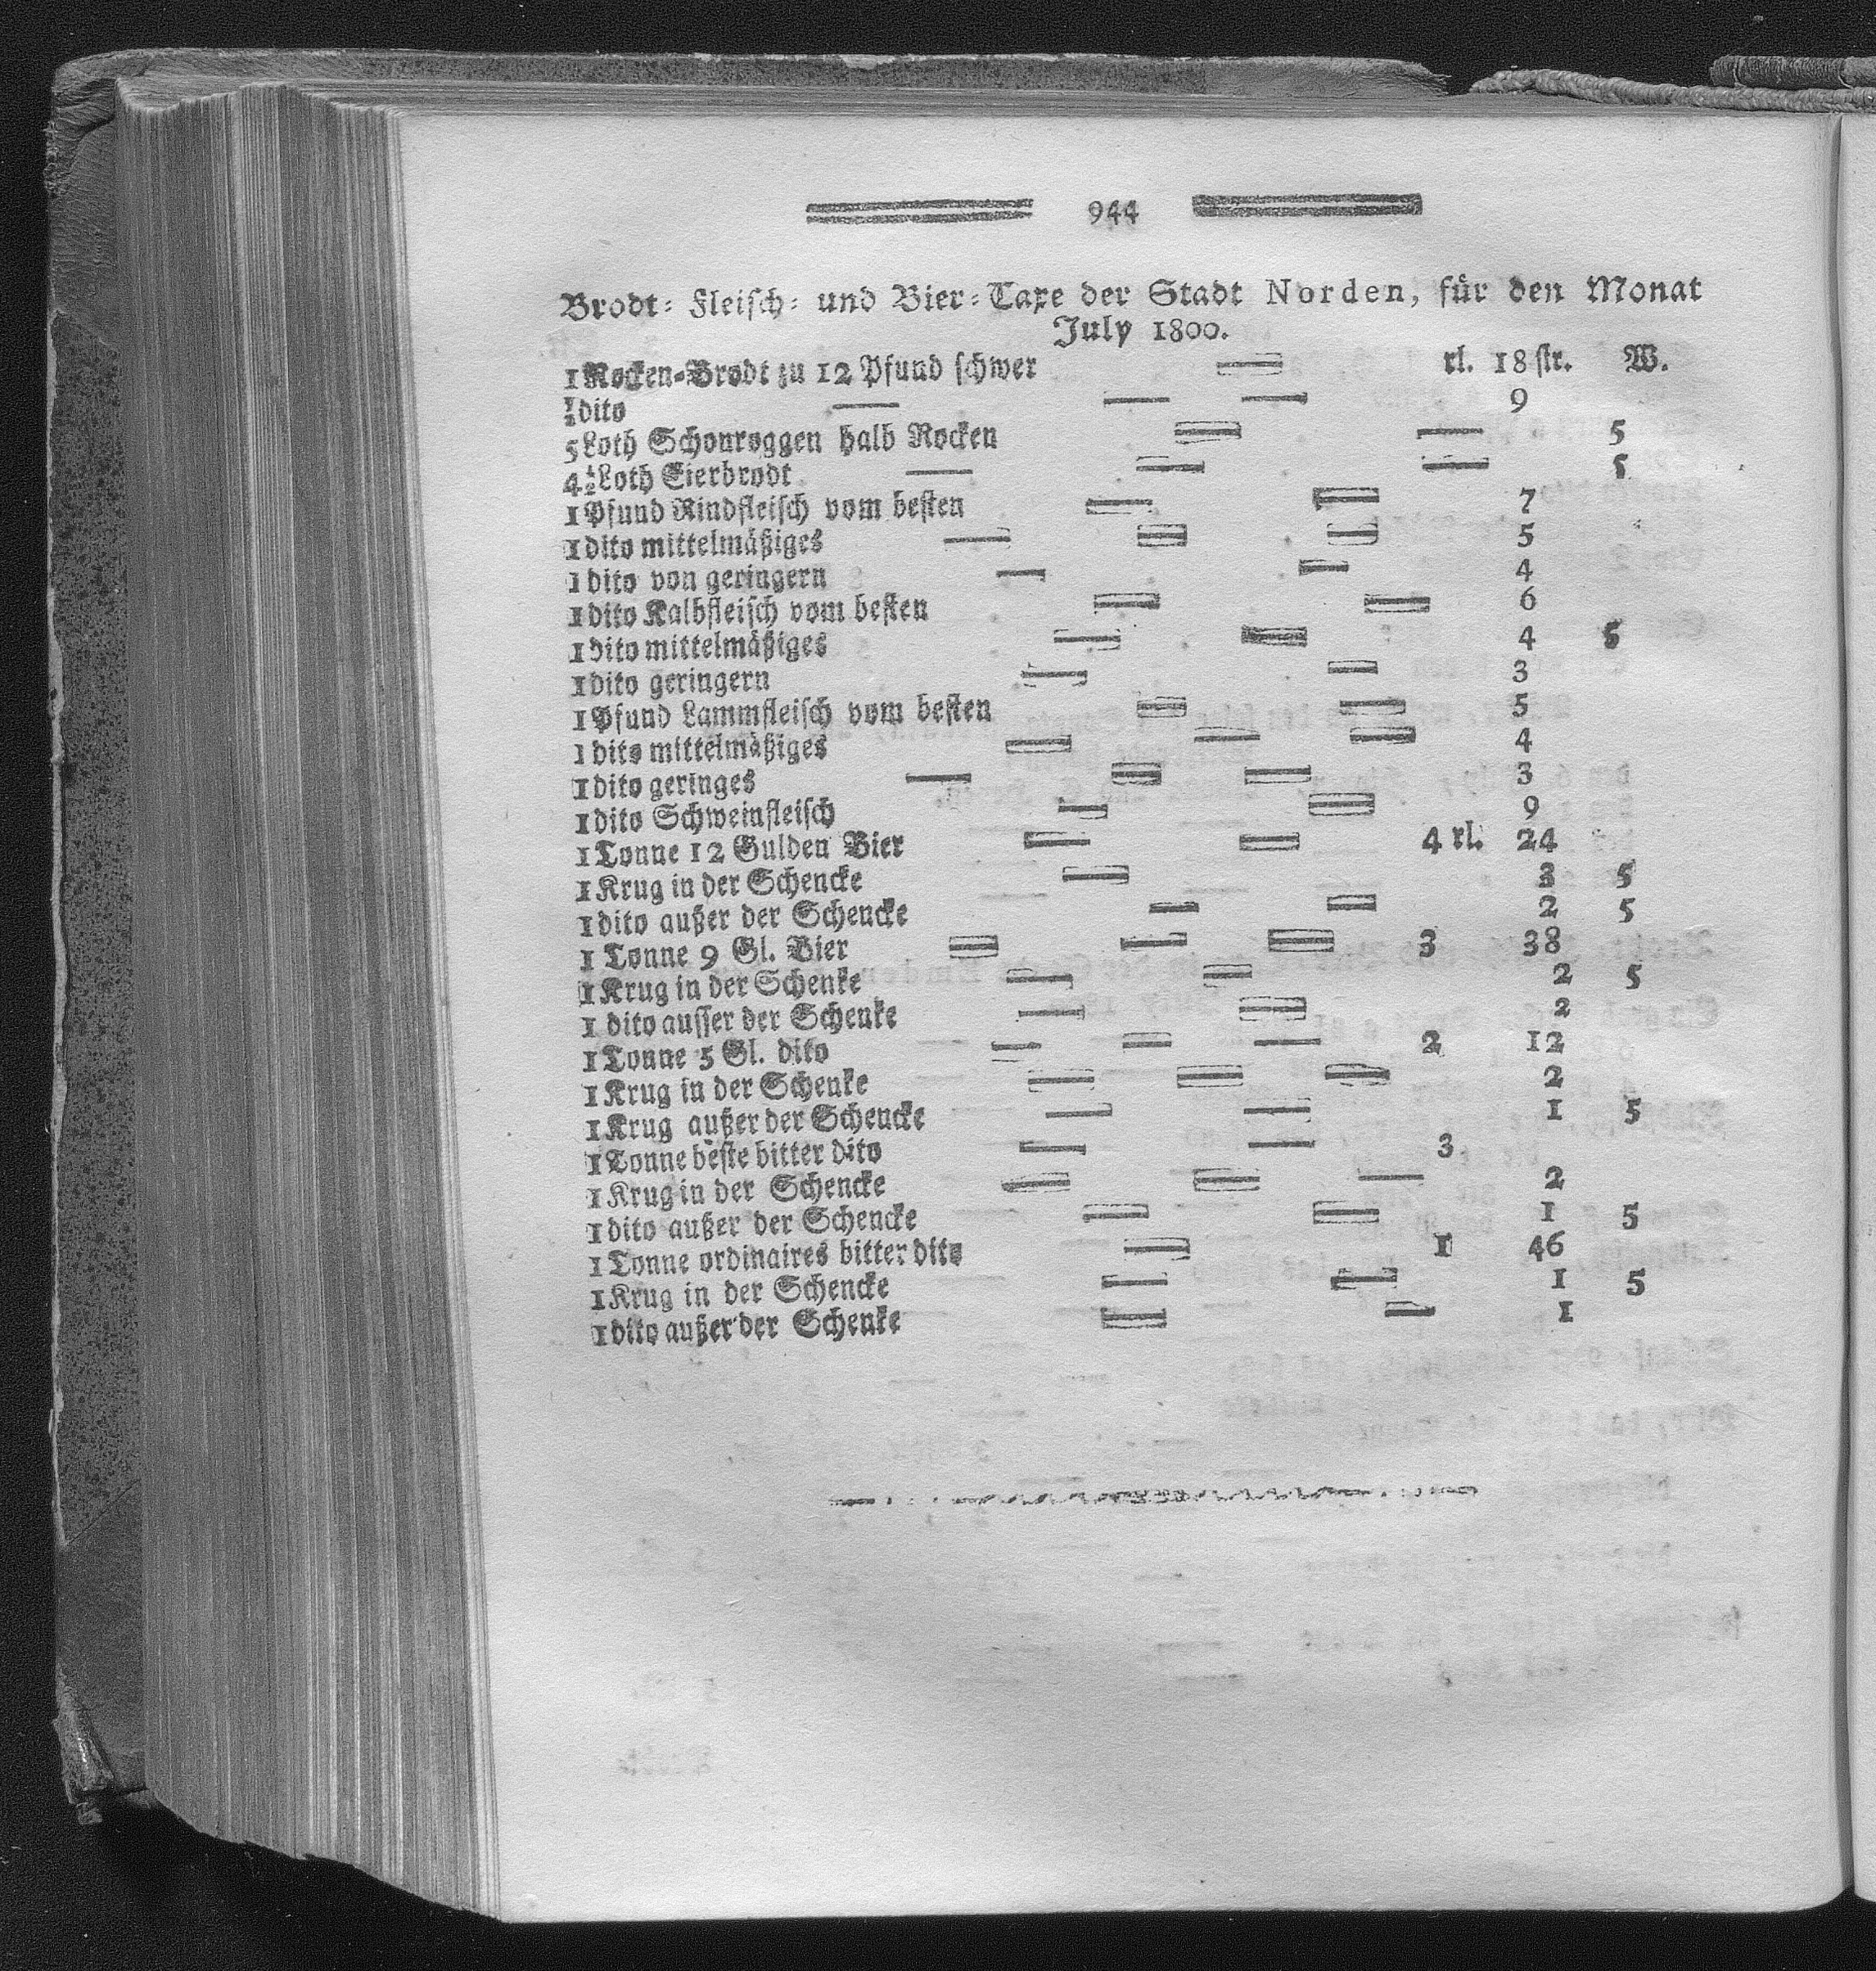 944
Brodt- Fleisch- und Bier-Taxe der Stadt Norden, für den Monat
July 1800.
1 Rocken-Brodt zu 12 Pfund schwer — rl. 18 str. W.
½ dito — — — 9
5 Loth Schonroggen halb Rocken — — 5
4½ Loth Eierbrodt — — — 5
1 Pfund Rindfleisch vom besten — — 7
1 dito mittelmäßiges — — — 5
1 dito von geringern — — 4
1 dito Kalbfleisch vom besten — — 6
1 dito mittelmäßiges — — 4 5
1 dito geringern — — 3
1 Pfund Lammfleisch vom besten — — 5
1 dito mittelmäßiges — — — 4
1 dito geringes — — — 3
1 dito Schweinfleisch — — 9
1 Tonne 12 Gulden Bier — — 4 rl. 24
1 Krug in der Schencke — 3 5
1 dito außer der Schencke — — 2 5
1 Tonne 9 Gl. Bier — — — 3 38
1 Krug in der Schenke — — 2 5
1 dito ausser der Schenke — — 2
1 Tonne 5 Gl. dito — — — 2 12
1 Krug in der Schenke — — — 2
1 Krug außer der Schencke — — 1 5
1 Tonne beste bitter dito — — 3
1 Krug in der Schencke — — — 2
1 dito außer der Schencke — — 1 5
1 Tonne ordinaires bitter dito — 1 46
1 Krug in der Schencke — — 1 5
1 dito außer der Schenke — — 1